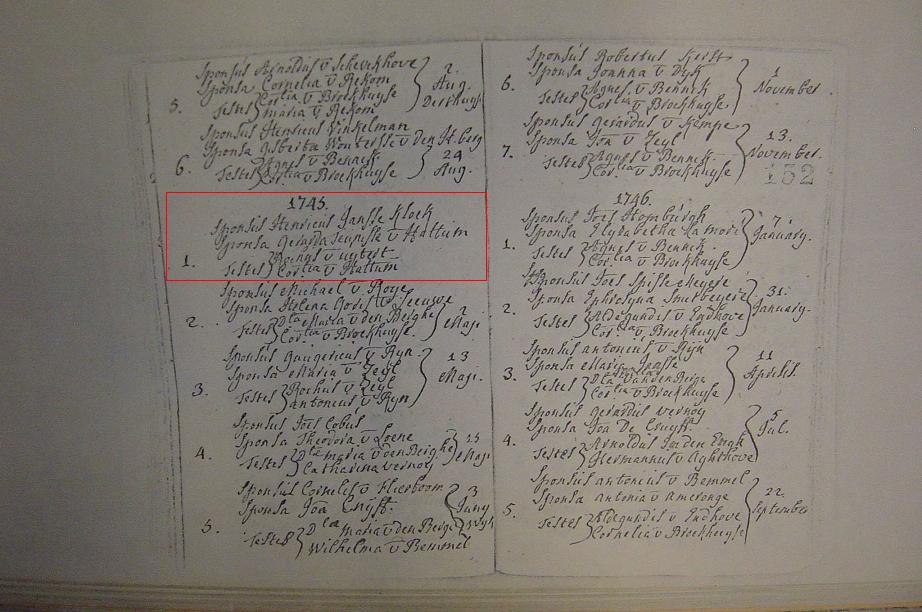 Sponsus Arnoldus v Schevekhove
Sponsa Cornelia v Rekom
5. Testes Cor:lia v Broekhuyse
maria v Rekom
2. Aug.
Sponsus Henricus Vinkelman
Sponsa Gisberta Woutersse v den Hberg
6. Testes Agnes v Bennik
Cor: v Broekhuyse
24 Aug.
1745.
Sponsus Henricus Jansse Kloek
Sponsa Gerarda Teunisse v Hattum
1. Testes v
Cor:lia v Hattum
Sponsus Michael v Roye
Sponsa Helena v Leeuwe
2. Testes D:la Maria v den Berghe
Cor:lia v Broekhuyse.
2 Maji
Sponsus Gaugericus v Ryn
Sponsa Maria v Zeyl
3. Testes Rochus v Zeyl
antonius v Ryn
13 Maji.
Sponsus Joës Cobus
Sponsa Theodora v Loene
4. Testes D:la maria v den Berghe
Catharina vernoy
25 Maji
Sponsus Cornelis v Vlierboom
Sponsa Joa Cruyff.
5. Testes D:la maria v den Berge
Wilhelma v Bemmel
3 Juny
Sponsus Robertus
Sponsa Joanna v Dyk
6. Testes Agnes v Bennik
Cor:lia v Broekhuyse.
1 November.
Sponsus Gerardus v Kempe
Sponsa Joa v Zeyl
7. Testes Agnes v Bennik.
Cor: v Broekhuyse
13. November.
152
1746.
Sponsus Joës Hombùrgh
Sponsa Elysabetha Lamori
1. Testes Agnes v Bennik
Cor:lia v Broekhuyse
7 January.
Sponsus Joës
Sponsa Ephrosyna
2. Testes Aldegundis v Endhove
Cor:lia v Broekhuyse
31. January.
Sponsus antonius v Rijn
Sponsa
3. Testes D:la v den Berge
Cor:lia v Broekhuyse
11 Aprilis.
Sponsus gerardus vernoy
Sponsa Joa De Cruyff
4. Testes Arnoldus
Hermannus v Aghthove
5 Jul.
Sponsus antonius v Bemmel
Sponsa antonia v Ameronge
5. Testes Aldegundis v Endhove
Cornelia v Broekhuyse
22. September